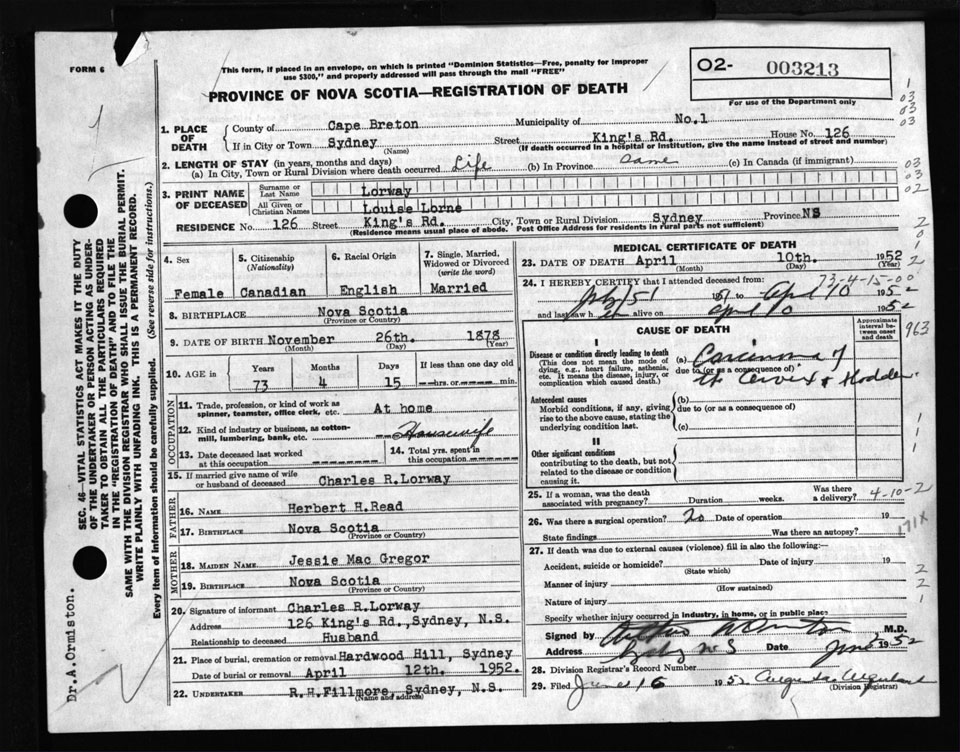 FORM 6
This form, if placed in an envelope, on which is printed "Dominion Statistics—Free, penalty for improper
use $300," and properly addressed will pass through the mail "FREE"
PROVINCE OF NOVA SCOTIA—REGISTRATION OF DEATH
02- 003213
For use of the Department only
1. PLACE OF DEATH
County of Cape Breton Municipality of No.1
If in City or Town Sydney Street King's Rd. House No. 126
(Name) (If death occurred in a hospital or institution, give the name instead of street and number)
2. LENGTH OF STAY (in years, months and days)
(a) In City, Town or Rural Division where death occurred Life (b) In Province Same (c) In Canada (if immigrant)
3. PRINT NAME OF DECEASED
Surname or Last Name Lorway
All Given or Christian Names Louise Lorne
RESIDENCE No. 126 Street King's Rd. City, Town or Rural Division Sydney Province NS
(Residence means usual place of abode. Post Office Address for residents in rural parts not sufficient)
4. Sex
Female
5. Citizenship
(Nationality)
Canadian
6. Racial Origin
English
7. Single, Married,
Widowed or Divorced
(write the word)
Married
8. BIRTHPLACE Nova Scotia
(Province or Country)
9. DATE OF BIRTH November 26th. 1878
(Month) (Day) (Year)
10. AGE in
Years Months Days If less than one day
73 4 15 hrs. or min.
OCCUPATION
11. Trade, profession, or kind of work as
spinner, teamster, office clerk, etc. At home
12. Kind of industry or business, as cotton-
mill, lumbering, bank, etc. Housewife
13. Date deceased last worked
at this occupation
14. Total yrs. spent in
this occupation
15. If married give name of wife
or husband of deceased Charles R.Lorway
FATHER
16. NAME Herbert H.Read
17. BIRTHPLACE Nova Scotia
(Province or Country)
MOTHER
18. MAIDEN NAME Jessie Mac Gregor
19. BIRTHPLACE Nova Scotia
(Province or Country)
20. Signature of informant Charles R.Lorway
Address 126 King's Rd.,Sydney, N.S.
Relationship to deceased Husband
21. Place of burial, cremation or removal Hardwood Hill, Sydney
Date of burial or removal April 12th. 1952.
22. UNDERTAKER R.H.Fillmore, Sydney, N.S.
(Name and address)
MEDICAL CERTIFICATE OF DEATH
23. DATE OF DEATH April 10th. 1952
(Month) (Day) (Year)
73-4-15-00
24. I HEREBY CERTIFY that I attended deceased from:
July 1951 to Apl 10 1952
and last saw h er alive on April 10 1952
CAUSE OF DEATH
Approximate
interval be-
tween onset
and death
I
Disease or condition directly leading to death
(This does not mean the mode of
dying, e.g., heart failure, asthenia,
etc. It means the disease, injury, or
complication which caused death.)
(a) Carcinoma of
due to (or as a consequence of)
Cervix +
Antecedent causes
Morbid conditions, if any, giving
rise to the above cause, stating the
underlying condition last.
(b)
due to (or as a consequence of)
(c)
II
Other significant conditions
contributing to the death, but not
related to the disease or condition
causing it.
25. If a woman, was the death
associated with pregnancy? Duration weeks. Was there
a delivery? 4-10-2
26. Was there a surgical operation? no Date of operation 19
State findings Was there an autopsy?
171X
27. If death was due to external causes (violence) fill in also the following:—
Accident, suicide or homicide? Date of injury 19
(State which)
Manner of injury
(How sustained)
Nature of injury
Specify whether injury occurred in industry, in home, or in public place
Signed by M.D.
Address Sydney N S Date June 1952
28. Division Registrar's Record Number
29. Filed June 16 1952
(Division Registrar)
1
03
03
03
03
03
02
2
0
1
2
963
1
1
2
2
1
SEC. 46—VITAL STATISTICS ACT MAKES IT THE DUTY
OF THE UNDERTAKER OR PERSON ACTING AS UNDER-
TAKER TO OBTAIN ALL THE PARTICULARS REQUIRED
IN THE "REGISTRATION OF DEATH" AND TO FILE THE
SAME WITH THE DIVISION REGISTRAR WHO SHALL ISSUE THE BURIAL PERMIT.
WRITE PLAINLY WITH UNFADING INK. THIS IS A PERMANENT RECORD.
Every item of information should be carefully supplied. (See reverse side for instructions.)
Dr.A.Ormiston.